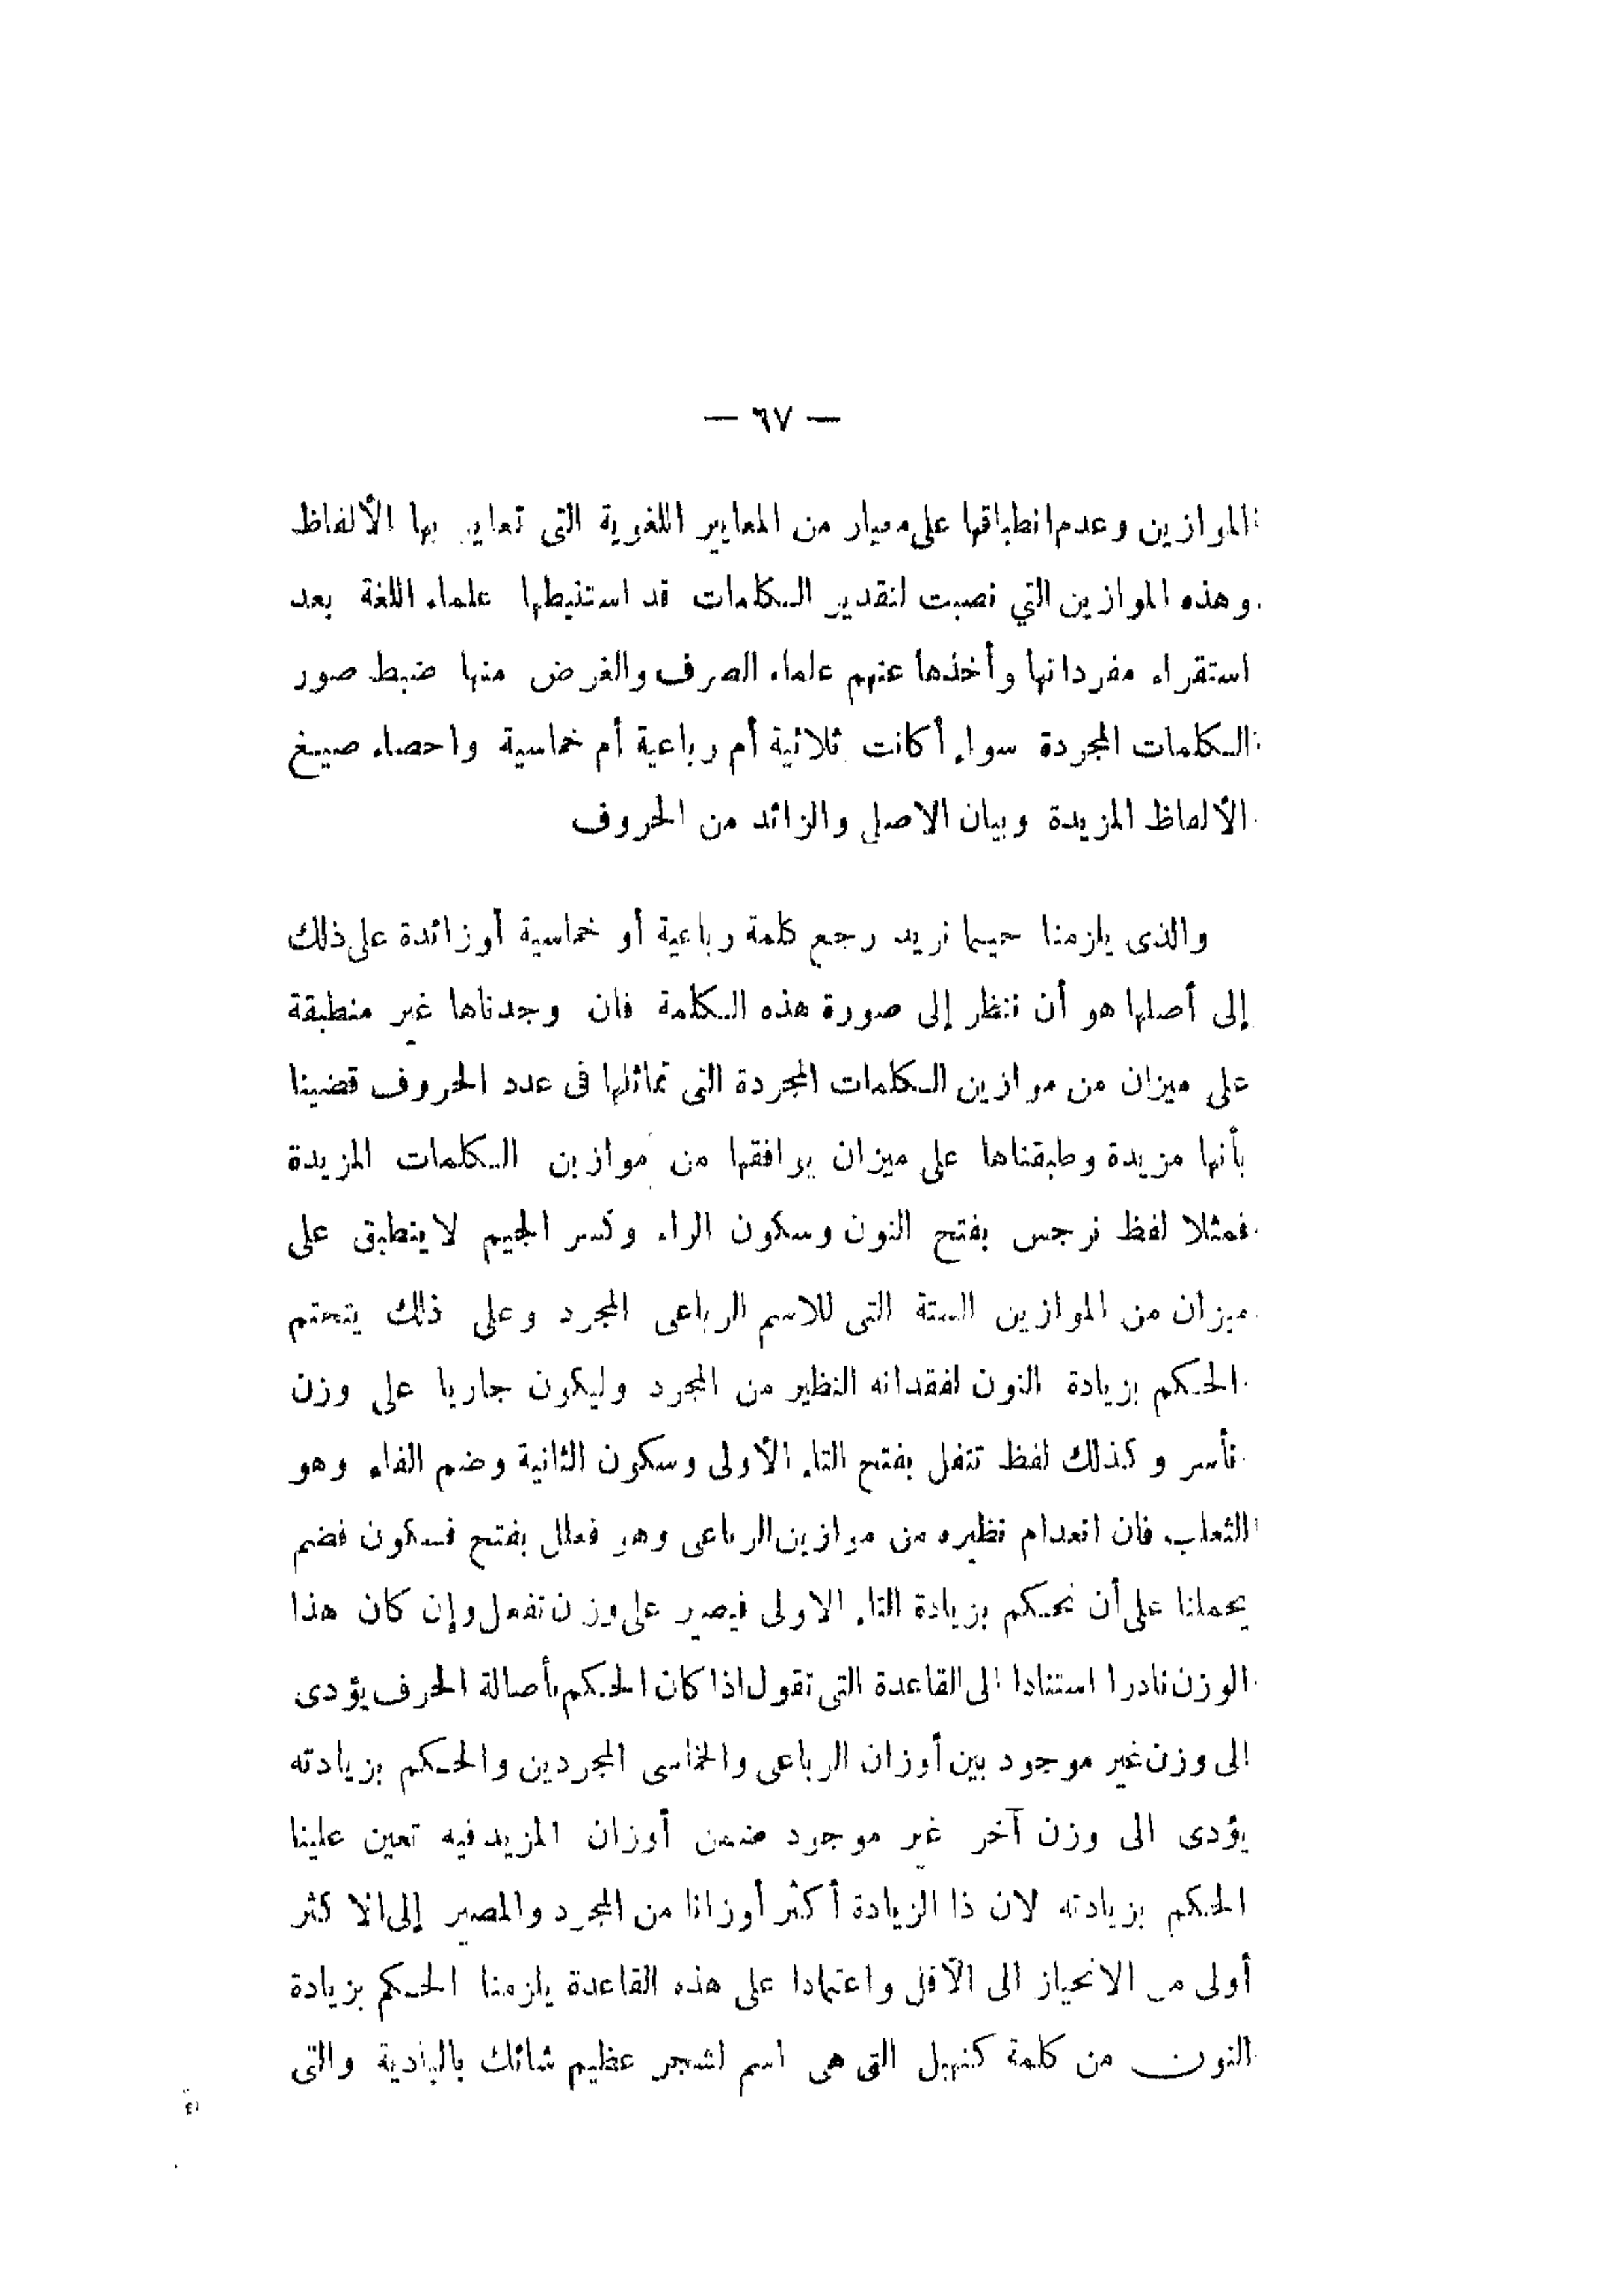 — ٦٧ —
الموازين وعدم انطباقها على معيار من المعايير اللغوية التى تعاير بها الألفاظ
وهذه الموازين التي نصبت لتقدير الكلمات قد استنبطها علماء اللغة بعد
استقراء مفرداتها وأخذها عنهم علماء الصرف والغرض منها ضبط صور
الكلمات المجردة سواء أكانت ثلاثية أم رباعية أم خماسية واحصاء صيغ
الألفاظ المزيدة وبيان الاصلى والزائد من الحروف
والذى يلزمنا حينما نريد رجع كلمة رباعية أو خماسية أو زائدة على ذلك
إلى أصلها هو أن ننظر إلى صورة هذه الكلمة فان وجدناها غير منطبقة
على ميزان من موازين الكلمات المجردة التى تماثلها فى عدد الحروف قضينا
بأنها مزيدة وطبقناها على ميزان يوافقها من موازين الكلمات المزيدة
فمثلا لفظ نرجس بفتح النون وسكون الراء وكسر الجيم لا ينطبق على
ميزان من الموازين الستة التى للاسم الرباعى المجرد وعلى ذلك يتحتم
الحكم بزيادة النون لفقدانه النظير من المجرد وليكون جاريا على وزن
نأسر وكذلك لفظ تتفل بفتح التاء الأولى وسكون الثانية وضم الفاء وهو
الثعلب فان انعدام نظيره من موازين الرباعى وهو فعلل بفتح فسكون فضم
يحملنا على أن نحكم بزيادة التاء الاولى فيصير على وزن تفعل وإن كان هذا
الوزن نادرا استنادا الى القاعدة التى تقول اذا كان الحكم بأصالة الحرف يؤدى
الى وزن غير موجود بين أوزان الرباعى والخماسى المجردين والحكم بزيادته
يؤدى الى وزن آخر غير موجود ضمن أوزان المزيد فيه تعين علينا
الحكم بزيادته لان ذا الزيادة أكثر أوزانا من المجرد والمصير إلى الاكثر
أولى من الانحياز الى الأقل واعتمادا على هذه القاعدة يلزمنا الحكم بزيادة
النون من كلمة كنهبل التى هى اسم لشجر عظيم شائك بالبادية والتى